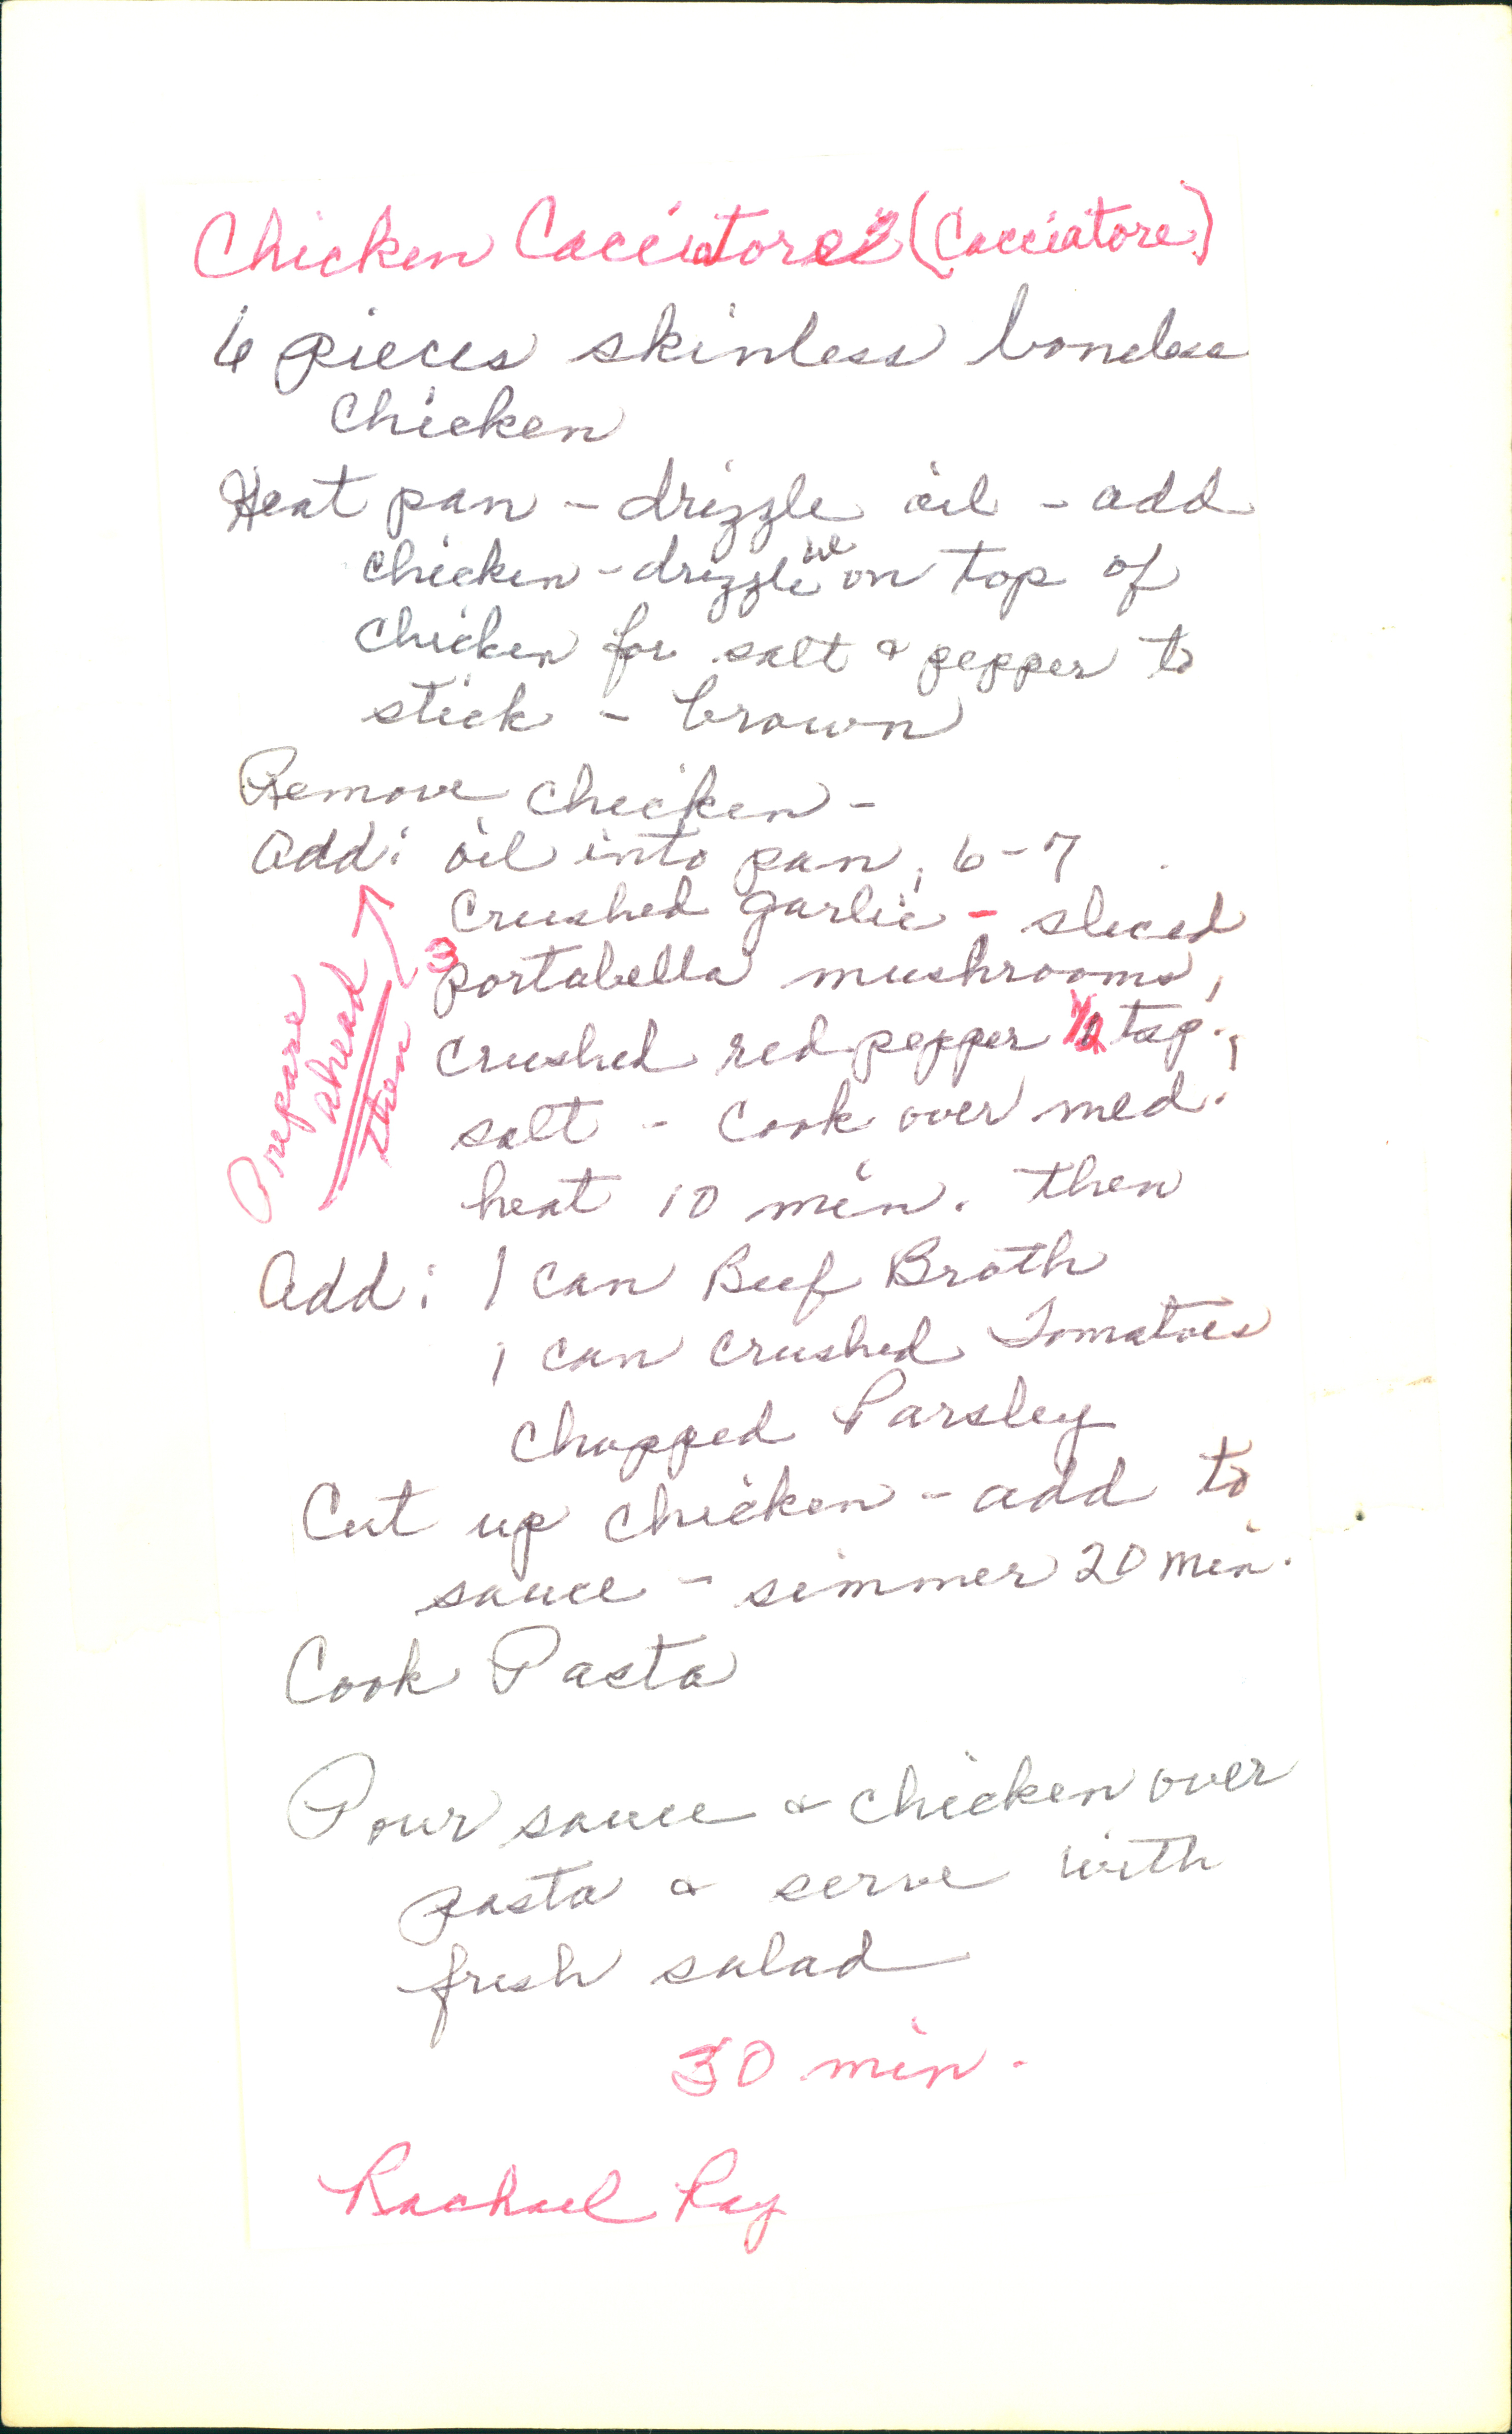 Chicken Cacciatore (Cacciatore)
6 pieces skinless boneless
chicken
Heat pan - drizzle oil - add
chicken - drizzle oil on top of
chicken for salt & pepper to
stick - brown
Remove chicken -
Add: oil into pan, 6-7
crushed garlic - sliced
3 portabella mushrooms,
crushed red pepper 1/2 tsp.,
salt - cook over med.
heat 10 min. then
Prepare
ahead
then
Add: 1 can Beef Broth
1 can crushed Tomatoes
chopped Parsley
Cut up chicken - add to
sauce - simmer 20 min.
Cook Pasta
Pour sauce & chicken over
pasta & serve with
fresh salad
30 min.
Rachael Ray